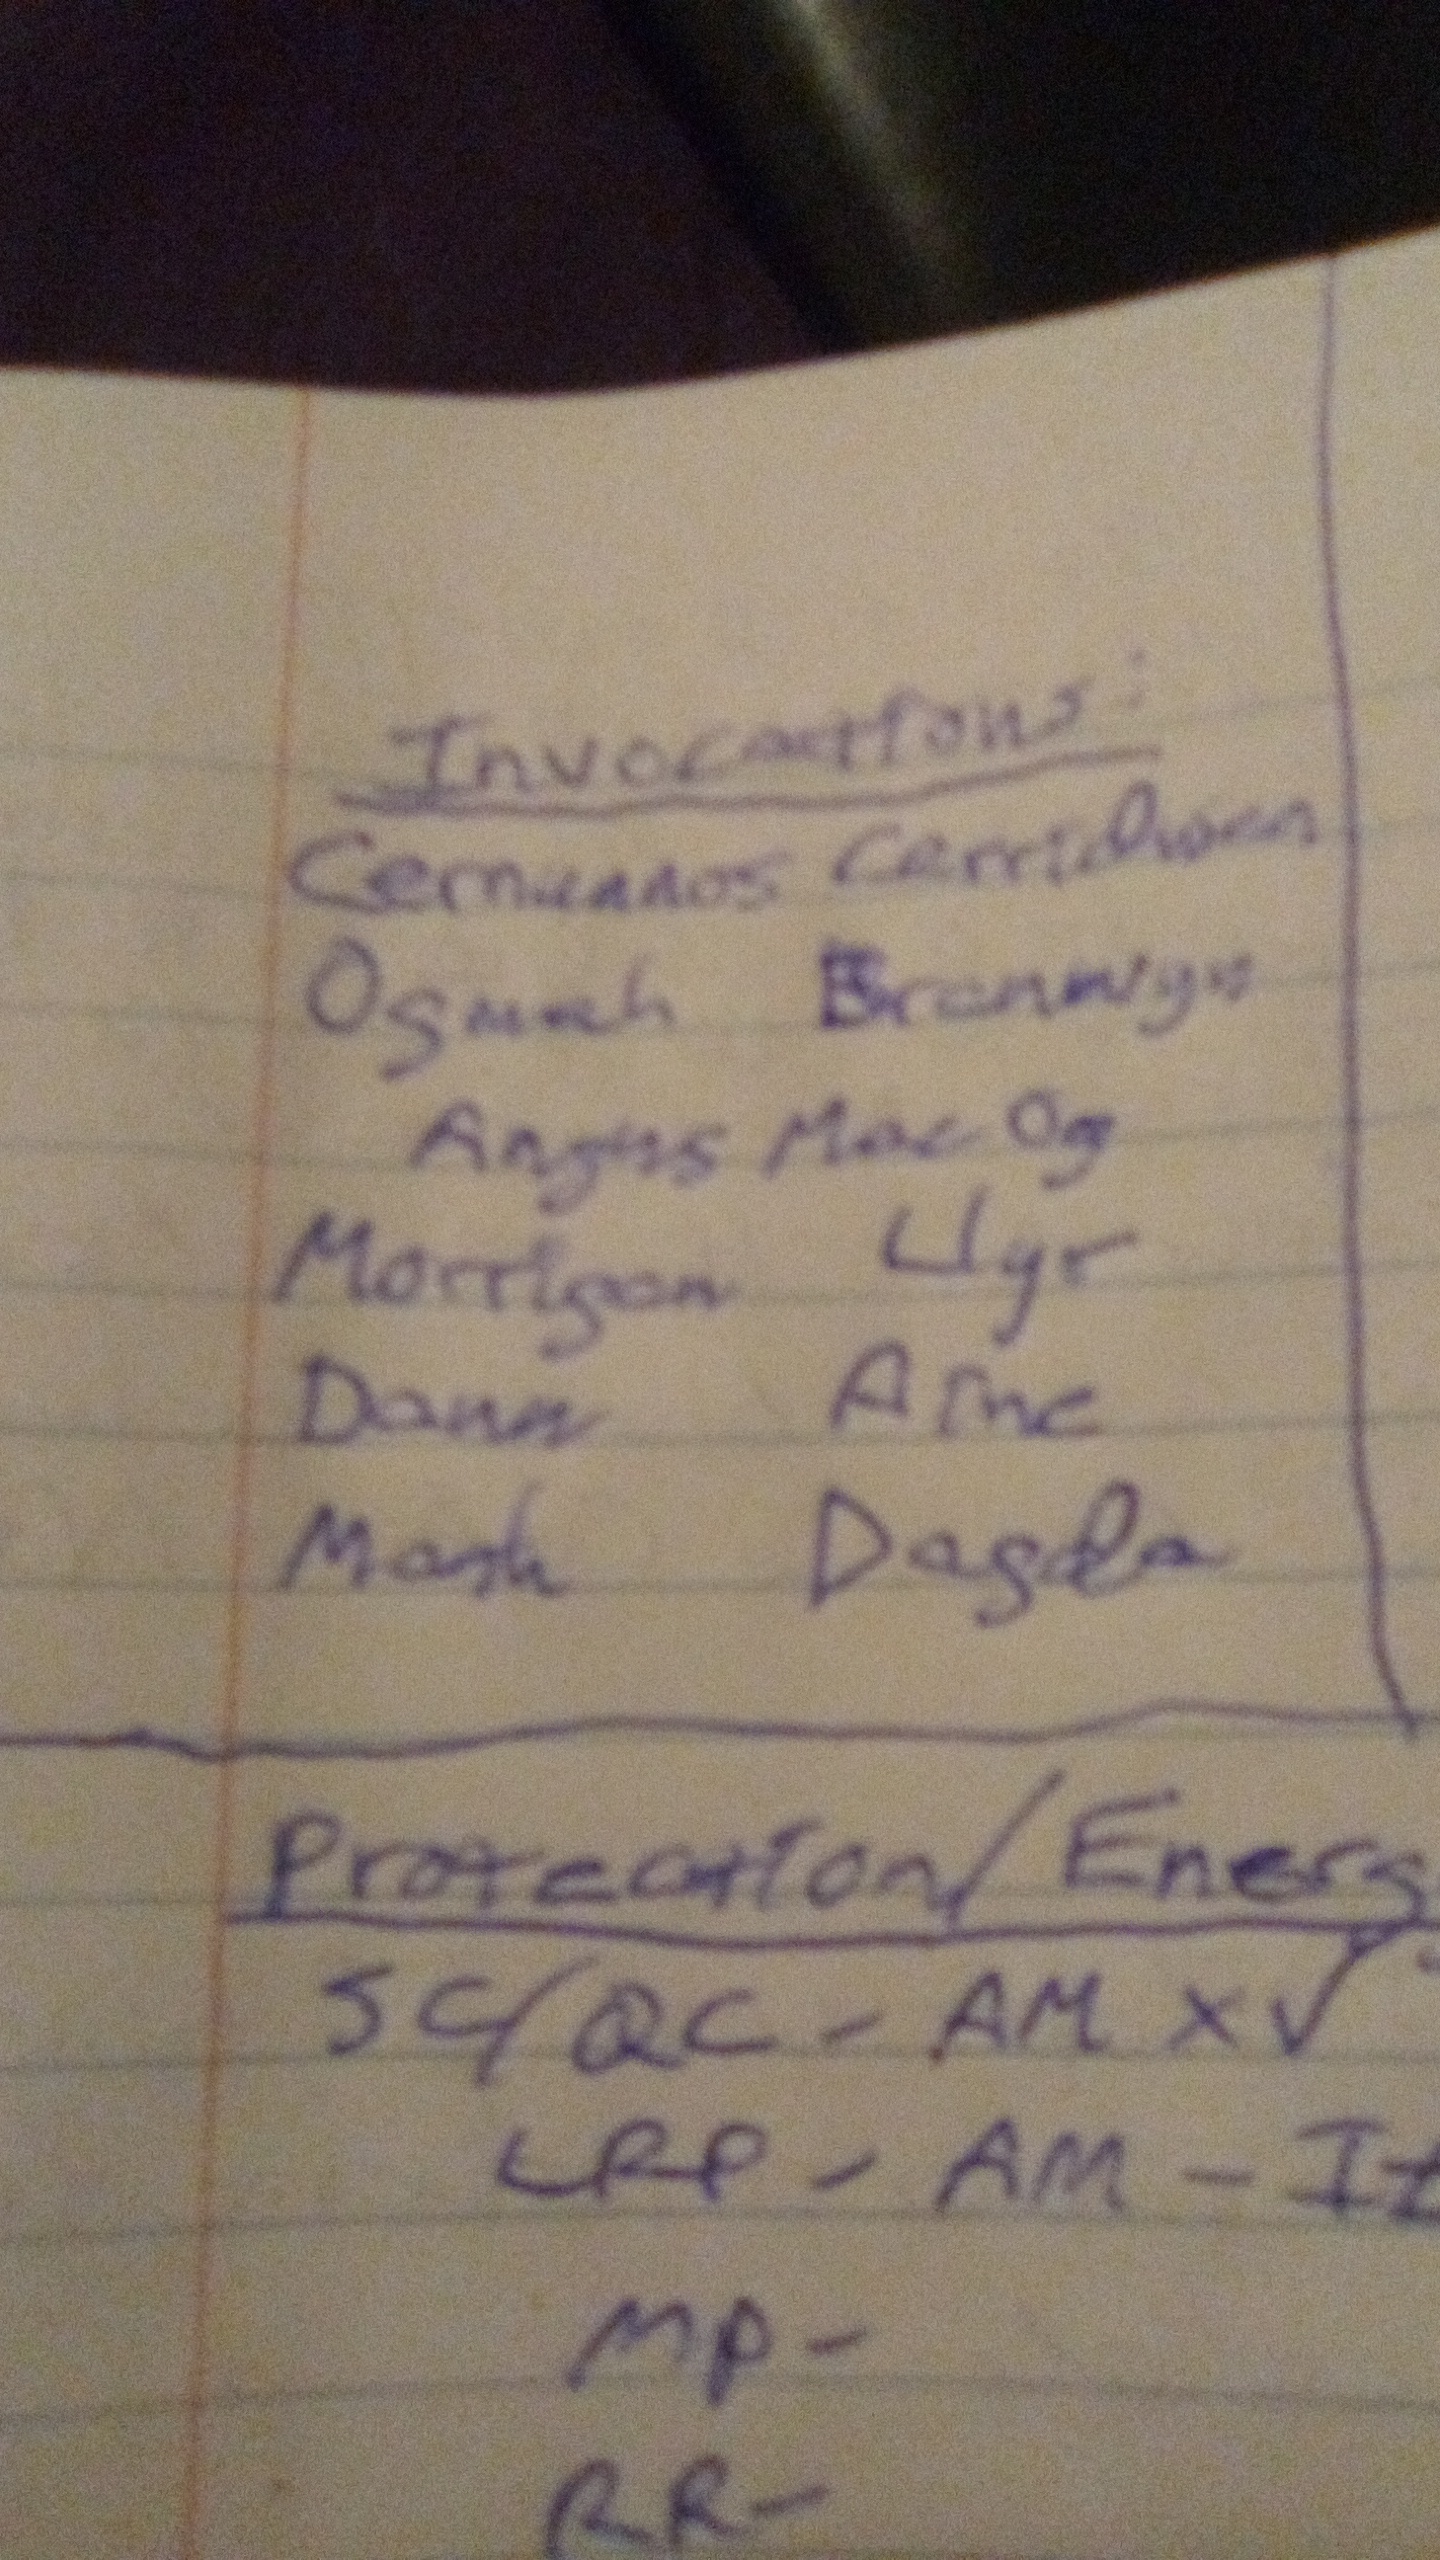 Invocations:
Cernunnos Cerridwen
Ogmah Branwyn
Angus Mac Og
Morrigan Llyr
Danu Aine
Math Dagda
Protection/Energ
SC/QC - AM x√
LRP - AM - It
MP -
RR -